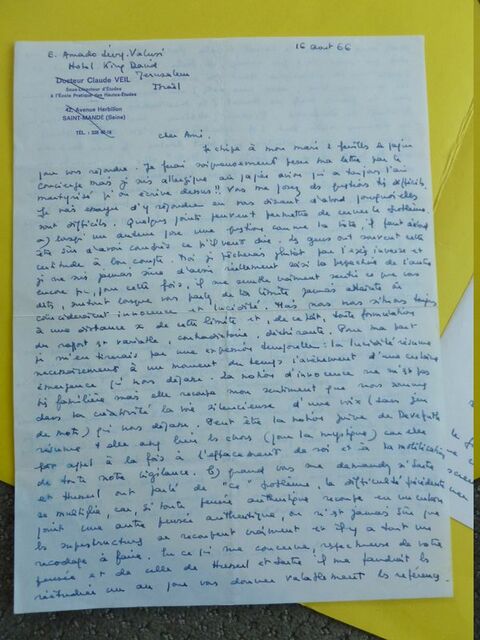 E. Amado Lévy-Valensi
16 août 66
Hotel King David
Jerusalem
Israël
Docteur Claude VEIL
Sous-Directeur d'Études
à l'École Pratique des Hautes-Études
42, Avenue Herbillon
SAINT-MANDÉ (Seine)
TÉL. :
cher Ami.
Je chipe à mon mari 2 feuilles de papier
pour vous répondre. Je ferai soigneusement peser ma lettre par le
concierge mais je suis allergique au papier avion qui a toujours l'air
martyrisé qu'on écrive dessus!! Vous me posez des questions très difficiles.
Je vais essayer d'y répondre en vous disant d'abord pourquoi elles
sont difficiles. Quelques points peuvent permettre de cerner le problème.
a) lorsqu'un auteur pose une question comme la vôtre, il faut d'abord
être sûr d'avoir compris ce qu'il veut dire. Les gens ont souvent cette
certitude à bon compte. Moi je pécherais plutôt par l'excès inverse et
je ne suis jamais sûre d'avoir réellement saisi la pensée de l'autre
encore que, pour cette fois, il me semble vraiment sentir ce que vous
dites, surtout lorsque vous parlez de la limite jamais atteinte où
coïncideraient innocence et lucidité. Mais nous nous situons toujours
à une distance x de cette limite et, de ce fait, toute formulation
du rapport est variable, contradictoire, déchirante. Pour ma part
je m'en tirerais par une expression temporelle : la lucidité résume
nécessairement à un moment du temps l'avènement d'une certaine
émergence qui nous dépasse. La notion d'innocence ne m'est pas
très familière mais elle recoupe mon sentiment que nous sommes
dans la créativité la voie silencieuse d'une voix (sans jeu
de mots) qui nous dépasse. Peut-être la notion juive de
résume-t-elle assez bien les choses (pour la mystique) car elle
fait appel à la fois à l'effacement de soi et à la mobilisation
de toute notre vigilance. b) quand vous me demandez si Sartre
et Husserl ont parlé de "ce" problème, la difficulté précédente
se multiplie, car, si toute pensée authentique recoupe en un certain
point une autre pensée authentique, on n'est jamais sûr que
les superstructures se recoupent vraiment et il y a tout un
recodage à faire. En ce qui me concerne, respectueuse de votre
pensée et de celle de Husserl et Sartre il me faudrait les
réétudier un an pour vous donner valablement les références.